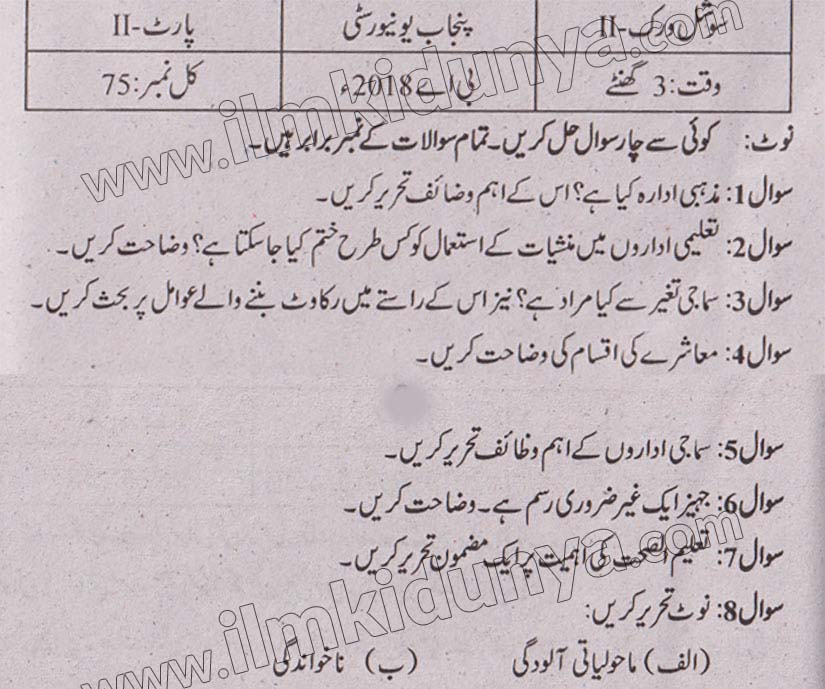 سوشل ورک-II پنجاب یونیورسٹی پارٹ-II
وقت: 3 گھنٹے بی اے 2018ء کل نمبر: 75
نوٹ: کوئی سے چار سوال حل کریں۔ تمام سوالات کے نمبر برابر ہیں۔
سوال 1: مذہبی ادارہ کیا ہے؟ اس کے اہم وضائف تحریر کریں۔
سوال 2: تعلیمی اداروں میں منشیات کے استعمال کو کس طرح ختم کیا جا سکتا ہے؟ وضاحت کریں۔
سوال 3: سماجی تغیر سے کیا مراد ہے؟ نیز اس کے راستے میں رکاوٹ بننے والے عوامل پر بحث کریں۔
سوال 4: معاشرے کی اقسام کی وضاحت کریں۔
سوال 5: سماجی اداروں کے اہم وظائف تحریر کریں۔
سوال 6: جہیز ایک غیر ضروری رسم ہے۔ وضاحت کریں۔
سوال 7: تعلیم الصحت کی اہمیت پر ایک مضمون تحریر کریں۔
سوال 8: نوٹ تحریر کریں:
(الف) ماحولیاتی آلودگی (ب) ناخواندگی
www.ilmkidunya.com
www.ilmkidunya.com